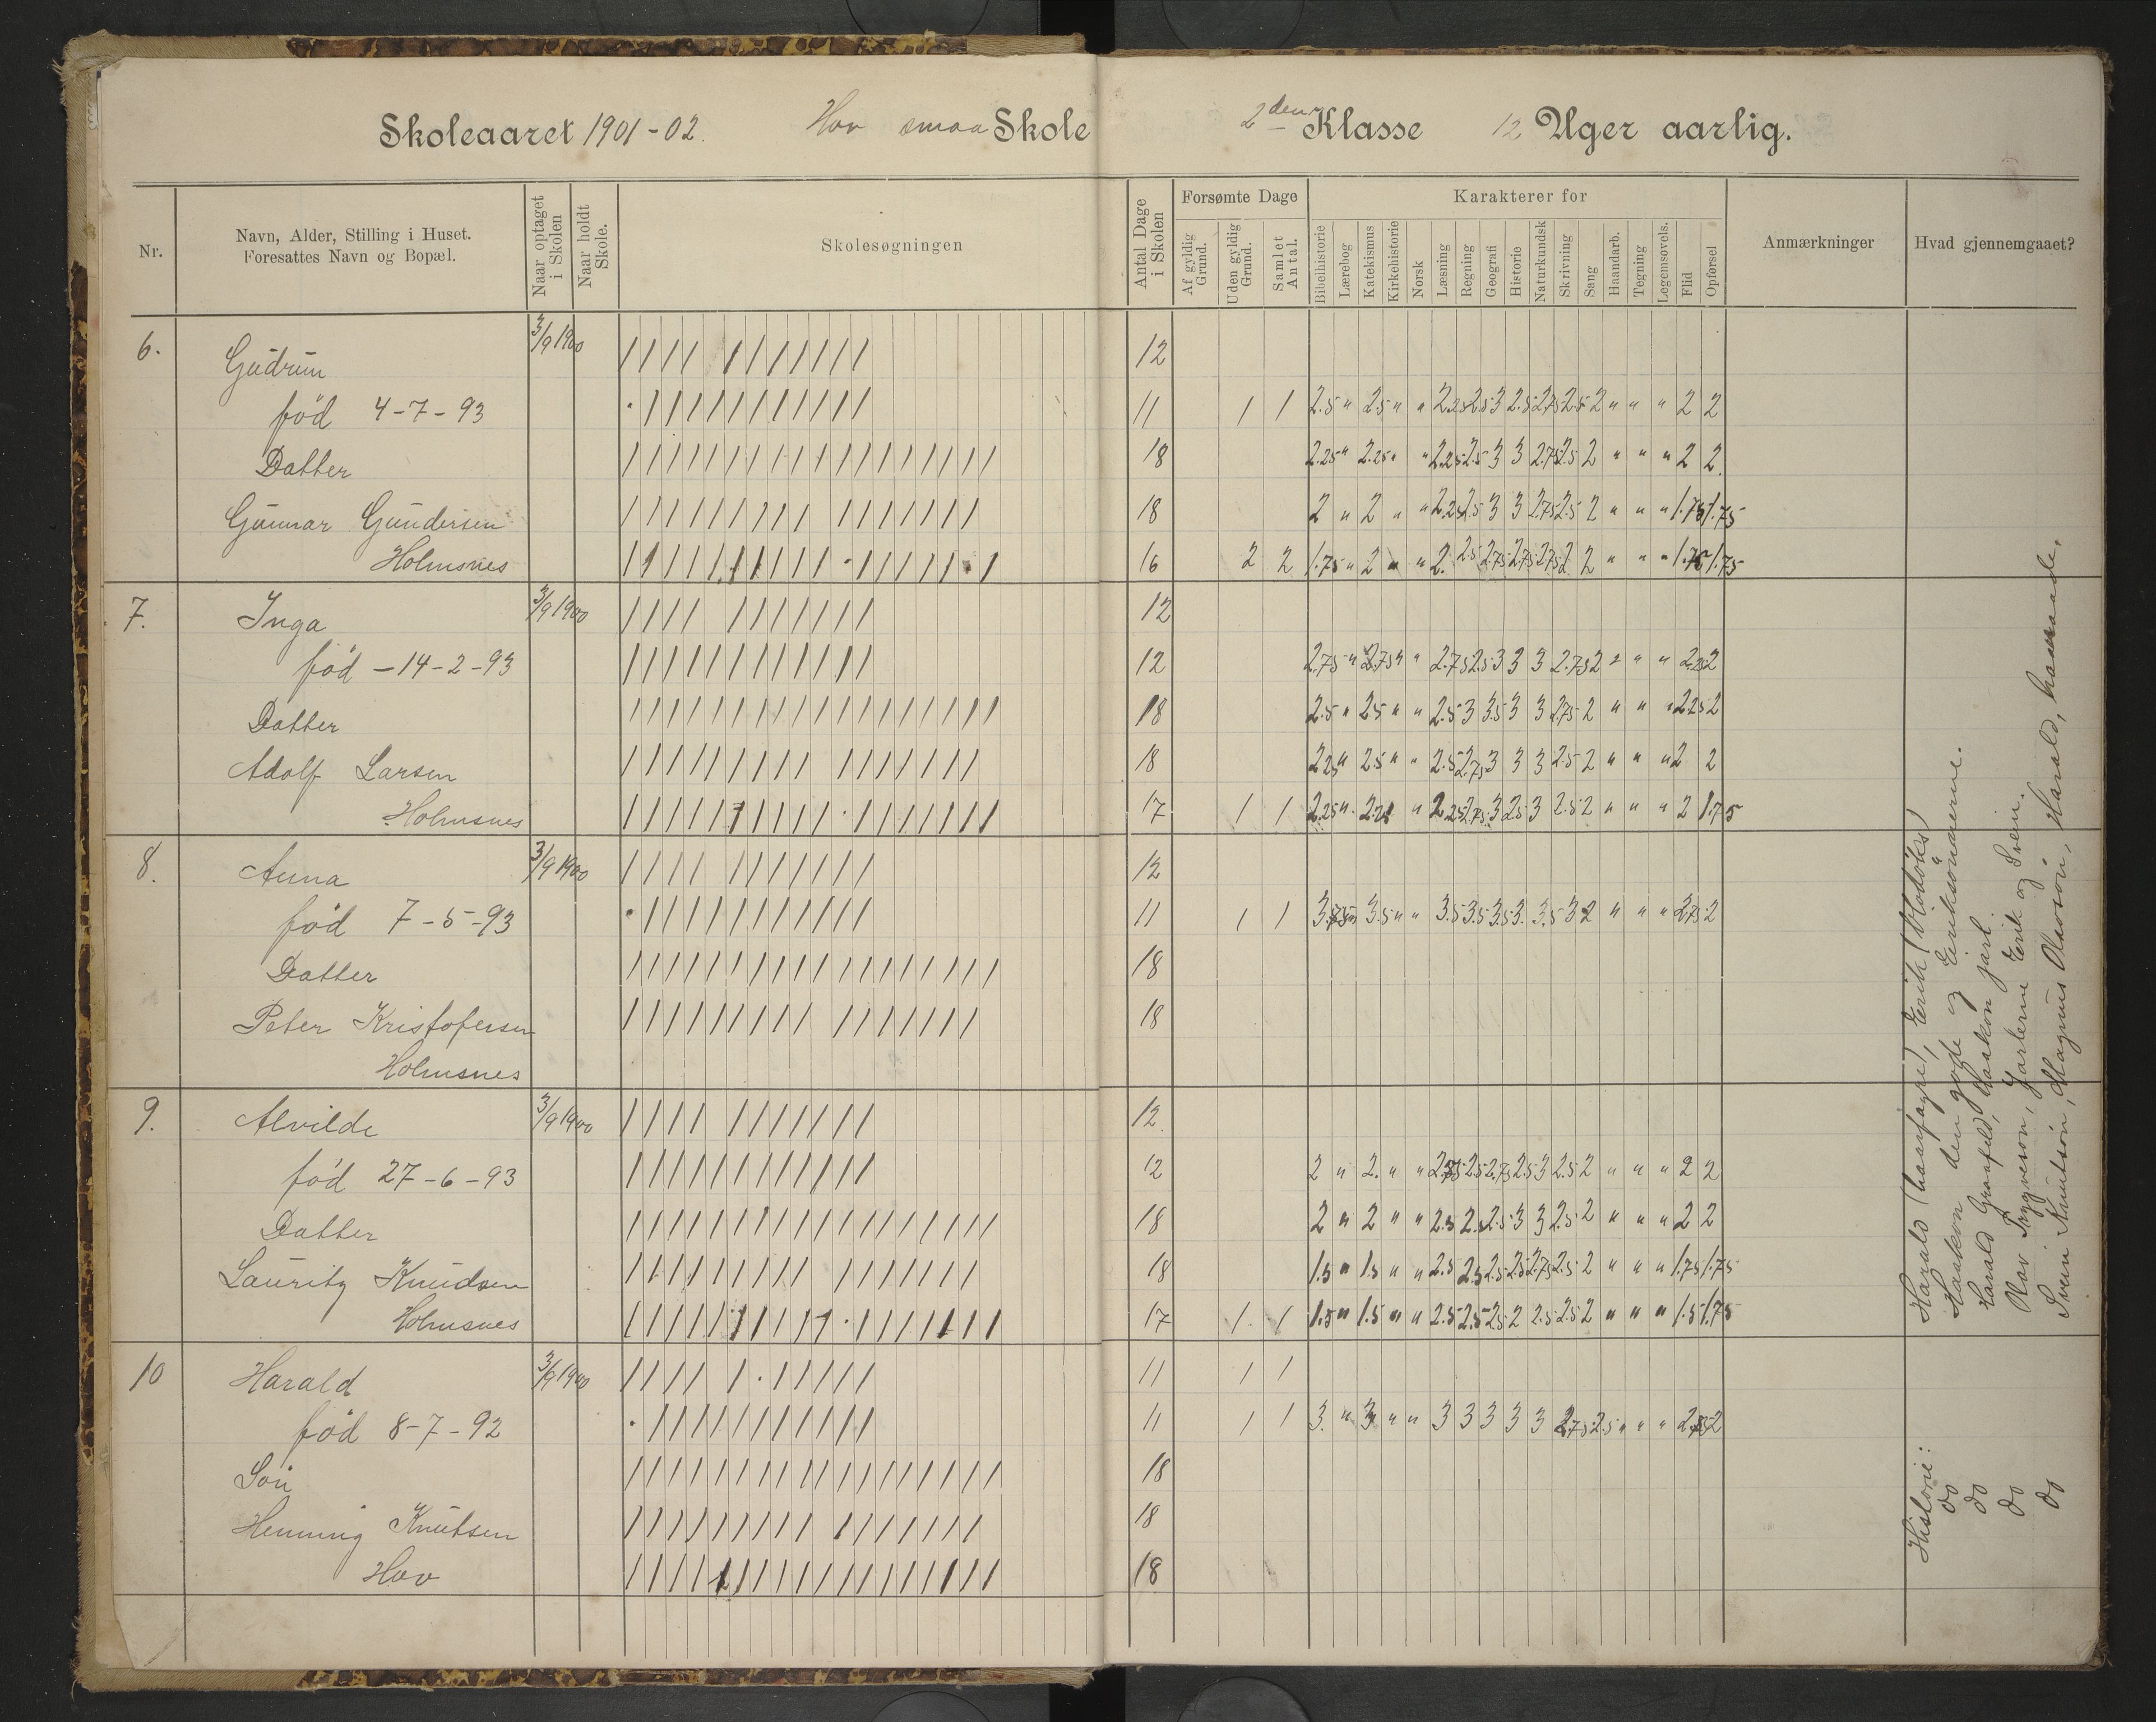 Skoleaaret 1901-02. Hov smaa Skole 2den Klasse 12 Uger aarlig.
Nr.
Navn, Alder, Stilling i Huset.
Foresattes Navn og Bopæl.
Naar optaget i Skolen
Naar holdt Skole.
Skolesøgningen
Antal Dage i Skolen
Forsømte Dage
Af gyldig Grund.
Uden gyldig Grund.
Samlet Antal.
Karakterer for
Bibelhistorie
Lærebog
Katekismus
Kirkehistorie
Norsk
Læsning
Regning
Geografi
Historie
Naturkundsk
Skrivning
Sang
Haandarb.
Tegning
Legemsøvels.
Flid
Opførsel
Anmærkninger
Hvad gjennemgaaet?
6. Gudrun 3/9 1900 12
fød 4-7-93 11 1 1 2.5 " 2.5 " " 2.25 2.5 3 2.5 2.75 2.5 2 " " " 2 2
Datter 18 2.25 " 2.25 " " 2.25 2.5 3 3 2.75 2.5 2 " " " 2 2
Gunnar Gundersen 18 2 " 2 " " 2.25 2.5 3 3 2.75 2.5 2 " " " 1.75 1.75
Holmsnes 16 2 2 1.75 " 2 " " 2. 2.5 2.75 2.75 2.75 2 2 " " " 1.75 1.75
7. Inga 3/9 1900 12
fød - 14-2-93 12 2.75 " 2.75 " " 2.75 2.5 3 3 3 2.75 2 " " " 2.25 2
Datter 18 2.5 " 2.5 " " 2.5 3 3.5 3 3 2.75 2 " " " 2.25 2
Adolf Larsen 18 2.25 " 2.5 " " 2.5 2.75 3 3 3 2.5 2 " " " 2 2
Holmsnes 17 1 1 2.25 " 2.25 " 2.25 2.75 3 2.5 3 2.5 2 " " " 2 1.75
8. Anna 3/9 1900 12
fød 7-5-93 11 1 1 3.5 " " 3.5 3.5 3.5 3. 3.5 3 2 " " " 2.75 2
Datter 18
Peter Kristofersen 18
Holmsnes
9. Alvilde 3/9 1900 12
fød 27-6-93 12 2 " 2. " " 2.5 2.75 2.5 3 2.5 2 " " " 2 2
Datter 18 2 " 2 " " 2.5 2.5 2.5 3 3 2.5 2 " " " 2 2
Lauritz Knudsen 18 1.5 " 1.5 " " 2.5 2.5 2.5 2.5 2.75 2.5 2 " " " 1.75 1.75
Holmsnes 17 1. 1 1.5 " 1.5 " " 2.5 2.5 2.5 2 2.5 2.5 2 " " " 1.5 1.75
10 Harald 3/9 1900 11 1 1
fød 8-7-92 11 1 1 3. " 3 " " 3 3 3 3 3 2.75 2.5 " " " 2
Søn 18
Henning Knutsen 18
Hov 18
Historie: Harald (haarfagre), Erik (Blodøks)
do Haakon den gode og Eirikssønnerne.
do Harald Graafeld, Haakon jarl.
do Olav Trygveson, Jarlerne Erik og Svein.
do Svein Knutsøn, Magnus Olavson, Harald, haarraade.